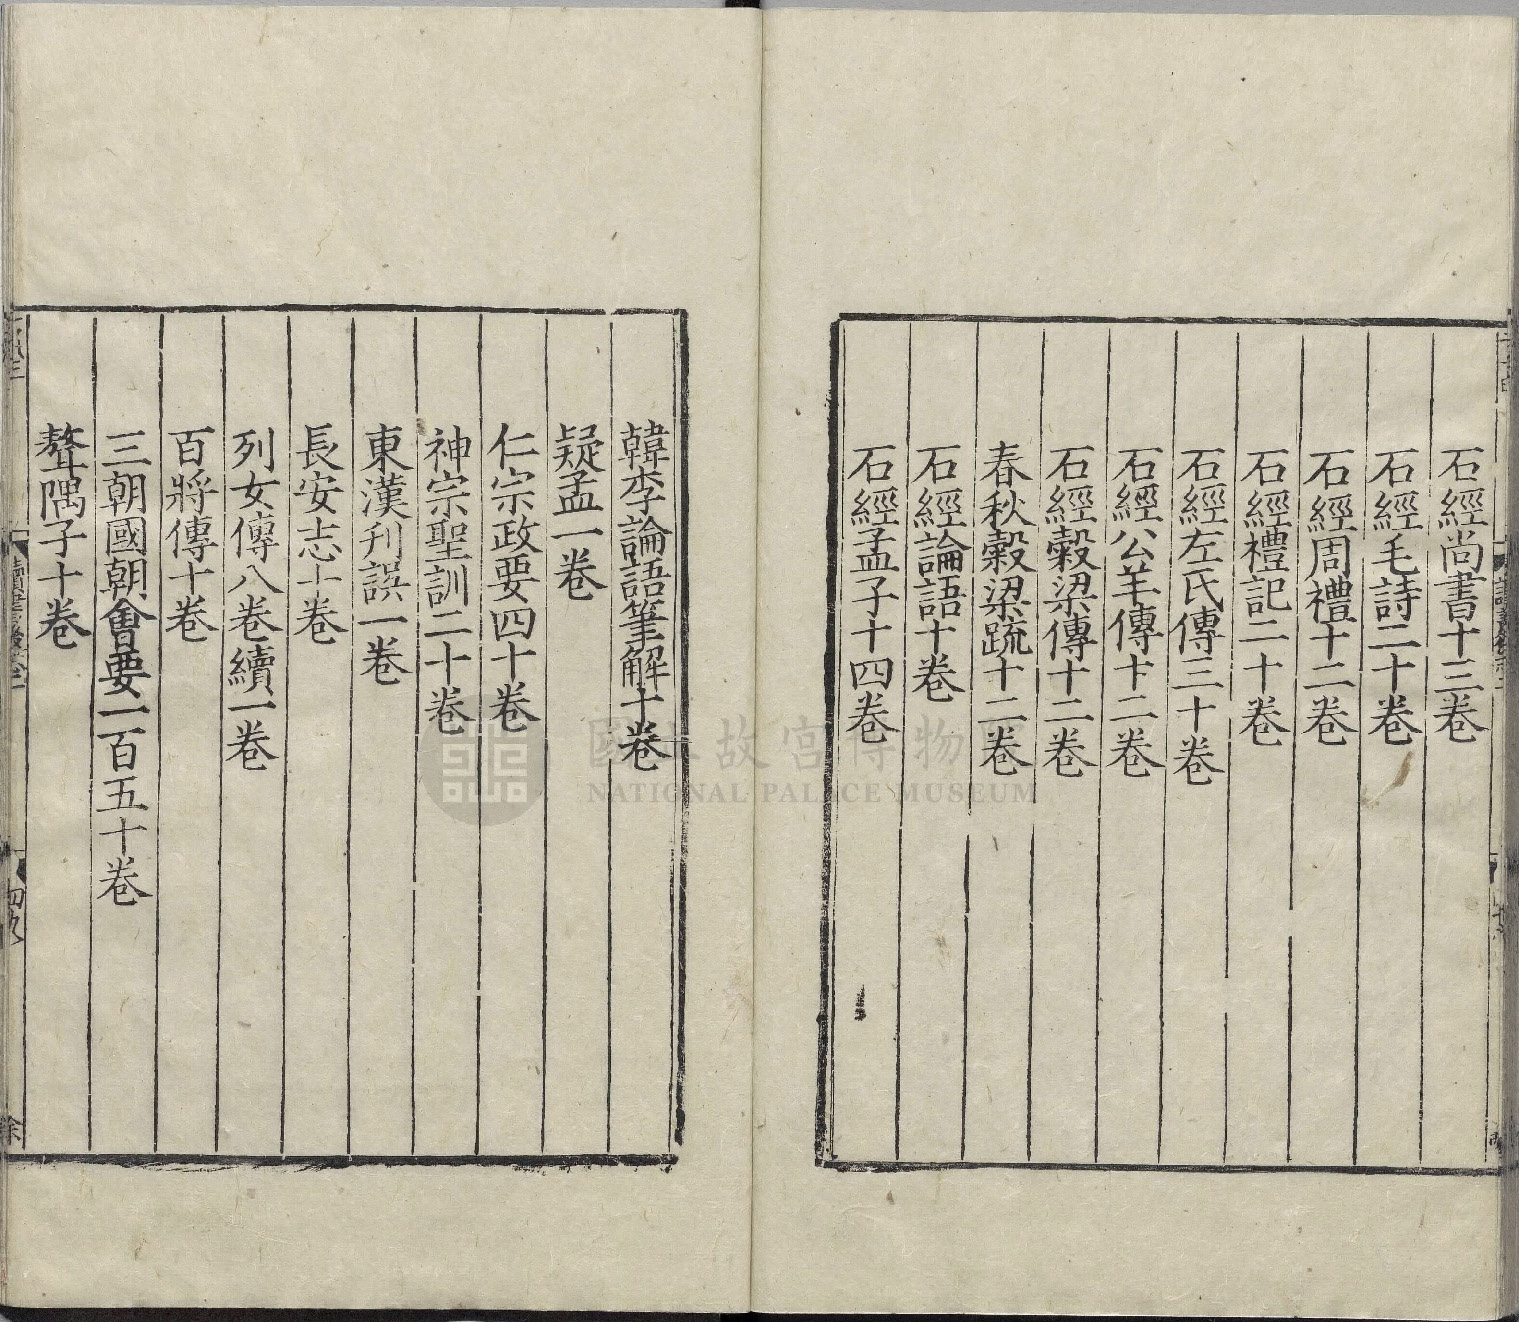 石經尚書十三卷
石經毛詩二十卷
石經周禮十二卷
石經禮記二十卷
石經左氏傳三十卷
石經公羊傳十二卷
石經穀梁傳十二卷
春秋穀梁疏十二卷
石經論語十卷
石經孟子十四卷
韓李論語筆解十卷
疑孟一卷
仁宗政要四十卷
神宗聖訓二十卷
東漢刋誤一卷
長安志十卷
列女傳八卷續一卷
百將傳十卷
三朝國朝會要一百五十卷
聱隅子十卷
國立故宮博物院
NATIONAL PALACE MUSEUM